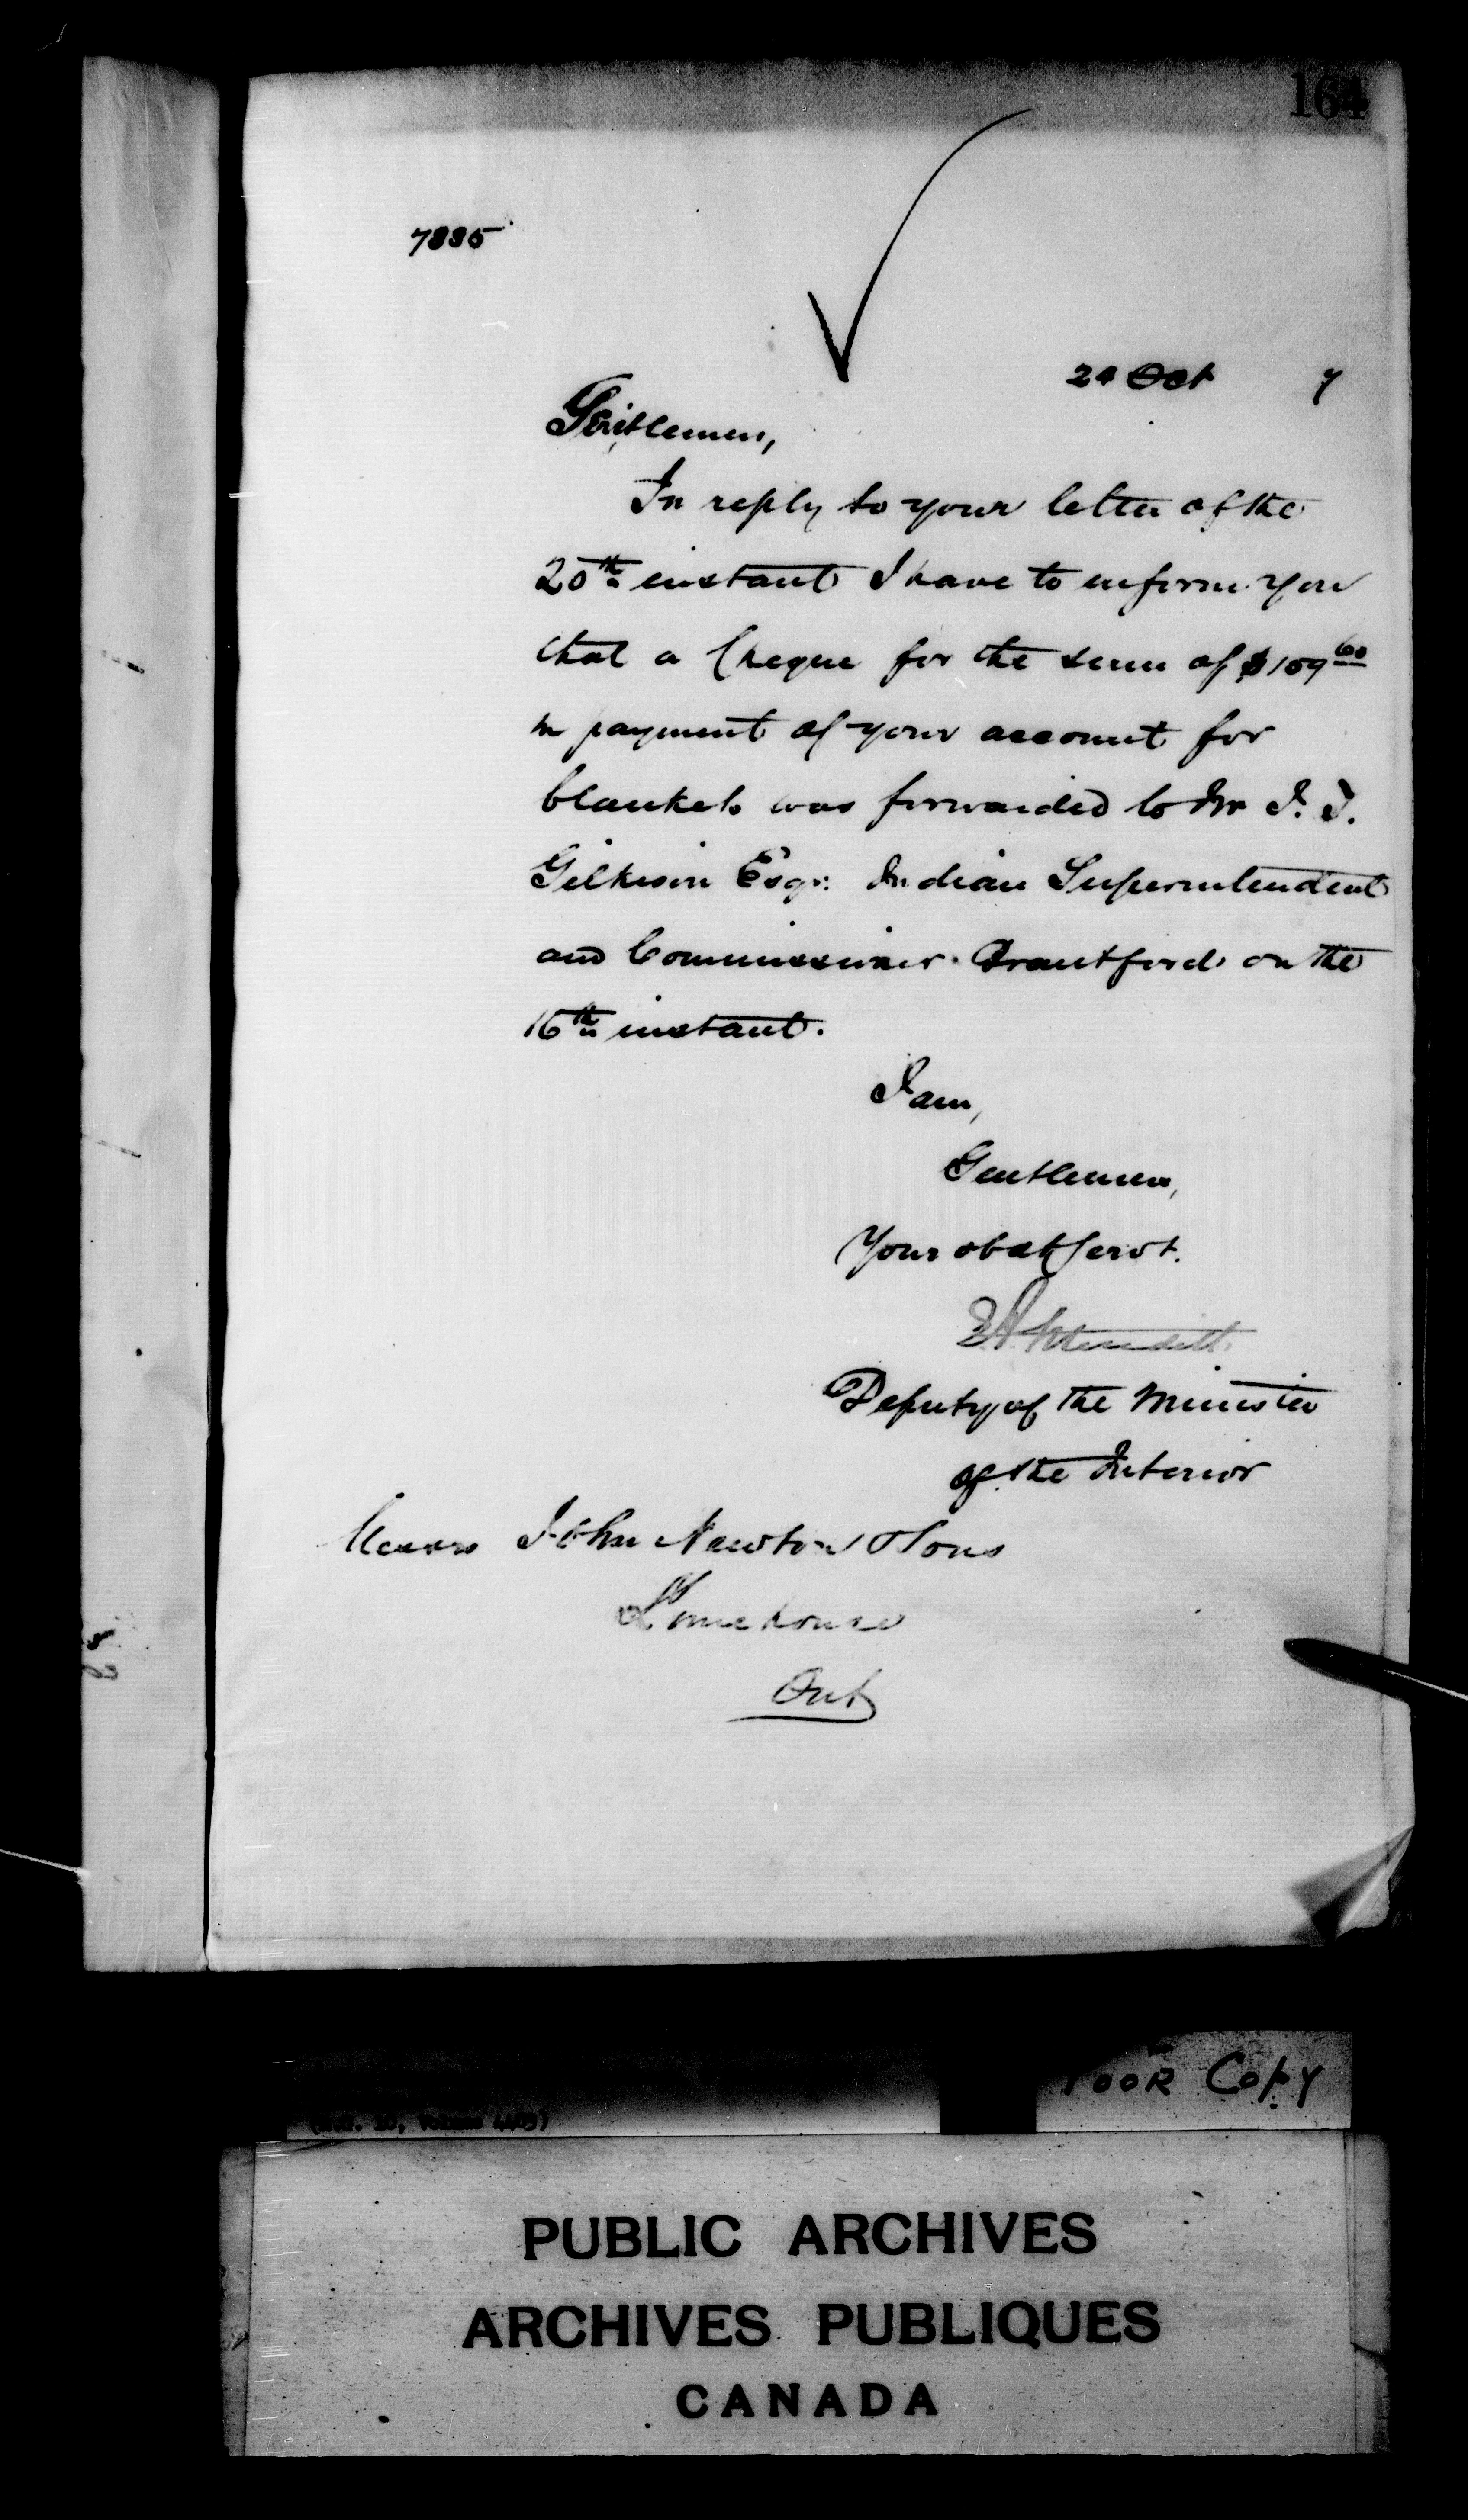 164
7885
24 Oct 7
Gentlemen,
In reply to your letter of the
20th instant I have to inform you
that a Cheque for the sum of $109 60
in payment of your account for
blankets was forwarded to Mr J. T.
Gilkison Esqr. Indian Superintendent
and Commissioner Brantford on the
16th instant.
I am,
Gentlemen,
Your obdt Servt.
E A Meredith
Deputy of the Minister
of the Interior
Messrs John Newton & Sons
Limehouse
Ont
Poor Copy
PUBLIC ARCHIVES
ARCHIVES PUBLIQUES
CANADA